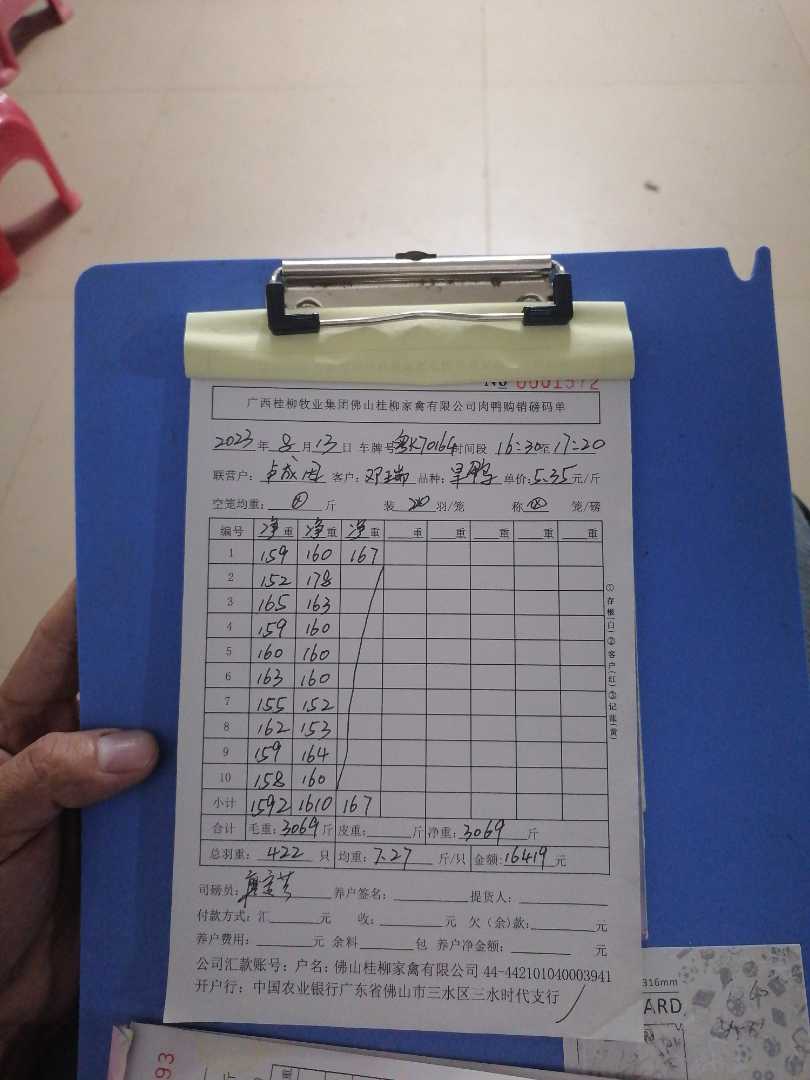 No 0001572
广西桂柳牧业集团佛山桂柳家禽有限公司肉鸭购销磅码单
2023年 8月 13日 车牌号粤K70164时间段 16:30至17:20
联营户: 卢成周 客户: 邓瑞 品种: 旱鸭 单价: 5.35元/斤
空笼均重: 斤 装 羽/笼 称 笼/磅
编号 净重 净重 净重 重 重 重 重 重
1 159 160 167
2 152 178
3 165 163
4 159 160
5 160 160
6 163 160
7 155 152
8 162 153
9 159 164
10 158 160
小计 1592 1610 167
合计 毛重: 3069斤 皮重: 斤 净重: 3069 斤
总羽重: 422 只 均重: 7.27 斤/只 金额: 16419元
司磅员: 养户签名: 提货人:
付款方式: 汇 元 收: 元 欠(余)款: 元
养户费用: 元 余料 包 养户净金额: 元
公司汇款账号: 户名: 佛山桂柳家禽有限公司 44-442101040003941
开户行: 中国农业银行广东省佛山市三水区三水时代支行
①存根(白)②客户(红)③记账(黄)
316mm
ARD
93